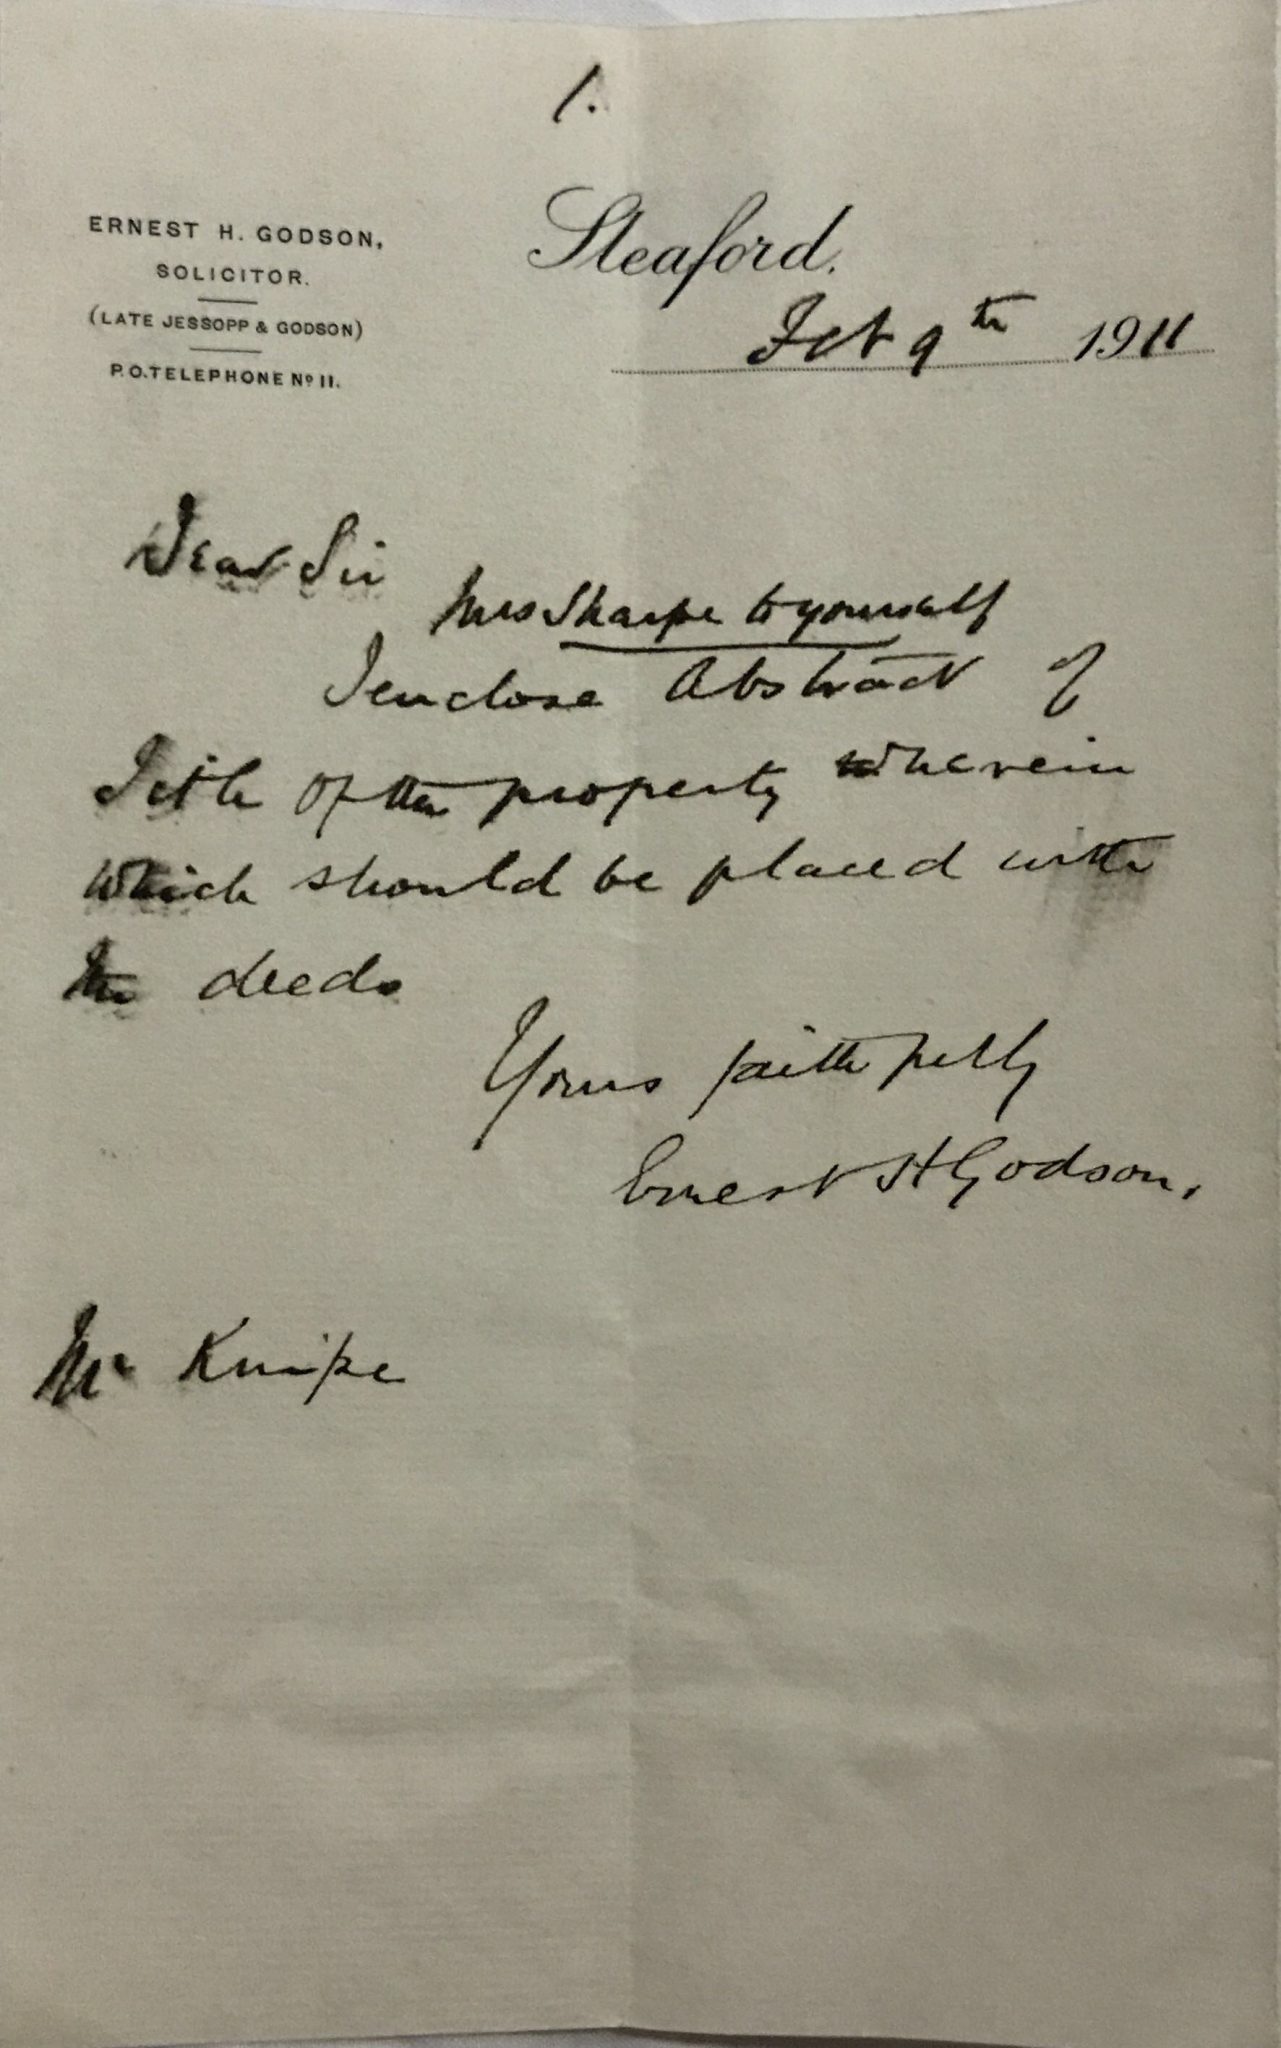 1.
ERNEST H. GODSON,
SOLICITOR.
(LATE JESSOPP & GODSON)
P.O. TELEPHONE No 11.
Sleaford.
Feb 9th 1911
Dear Sir
Mrs Sharpe to yourself
I enclose Abstract of
Title of the property wherein
which should be placed with
the deeds
Yours faithfully
Ernest H Godson.
Mr Knipe